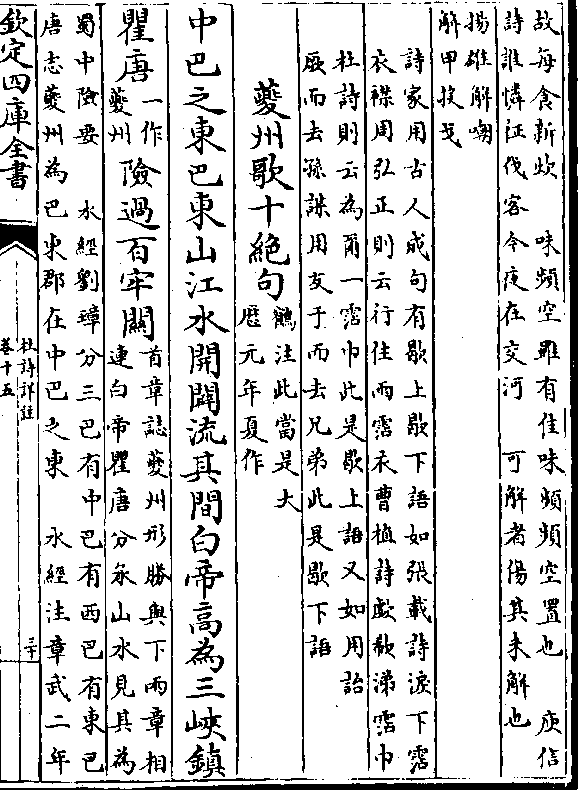 故每食新炊　味頻空雖有佳味頻頻空置也　庾信
詩誰憐征伐客今夜在交河　可解者傷其未解也
揚雄解嘲
解甲投戈
詩家用古人成句有歇上歇下語如張載詩淚下霑
衣襟周弘正則云行住兩霑衣曹植詩歔欷涕霑巾
杜詩則云為爾一霑巾此是歇上語又如用詒
厥而去孫謀用友于而去兄弟此是歇下語
夔州歌十絶句
鶴注此當是大
厯元年夏作
中巴之東巴東山江水開闢流其間白帝高為三峽鎮
瞿唐
一作
夔州
險過百牢關
首章誌夔州形勝與下兩章相
連白帝瞿唐分承山水見其為
蜀中險要　水經劉璋分三巴有中巴有西巴有東巴
唐志夔州為巴東郡在中巴之東　水經注章武二年
欽定四庫全書
杜詩詳註
卷十五
三十